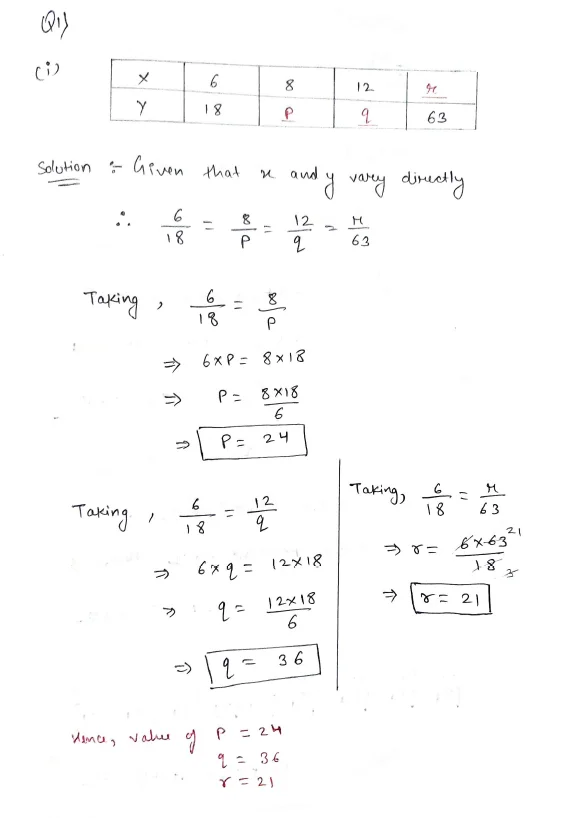 Q1)
(i)
X 6 8 12 r
Y 18 P q 63
Solution :- Given that x and y vary directly
∴ 6/18 = 8/P = 12/q = r/63
Taking, 6/18 = 8/P
⇒ 6×P = 8×18
⇒ P = 8×18/6
⇒ P = 24
Taking, 6/18 = 12/q
⇒ 6×q = 12×18
⇒ q = 12×18/6
⇒ q = 36
Taking, 6/18 = r/63
⇒ r = 6×63 21/18 3
⇒ r = 21
Hence, value of P = 24
q = 36
r = 21